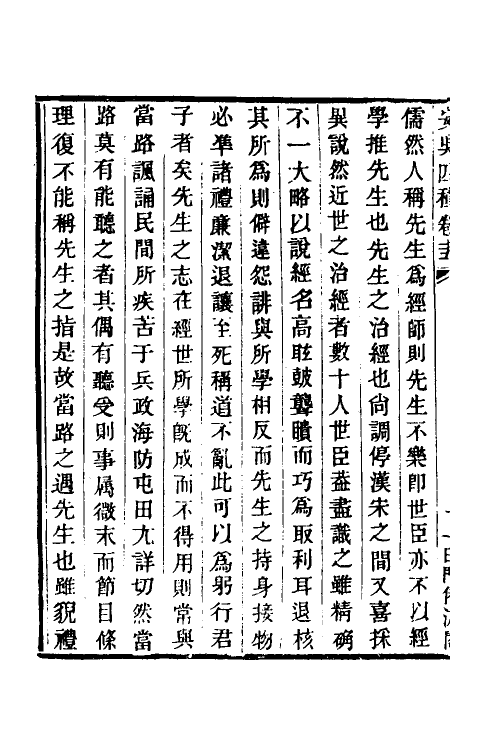 安吳四種卷
儒然人稱先生爲經師則先生不樂卽世臣亦不以經
學推先生也先生之治經也尙調停漢宋之間又喜採
異說然近世之治經者數十人世臣葢盡識之雖精确
不一大略以說經名高眩皷聾瞶而巧爲取利耳退核
其所爲則僻違怨誹與所學相反而先生之持身接物
必準諸禮廉潔退讓至死稱道不亂此可以爲躬行君
子者矣先生之志在經世所學旣成而不得用則常與
當路諷誦民間所疾苦于兵政海防屯田尤詳切然當
路莫有能聽之者其偶有聽受則事属微末而節目條
理復不能稱先生之指是故當路之遇先生也雖貌禮